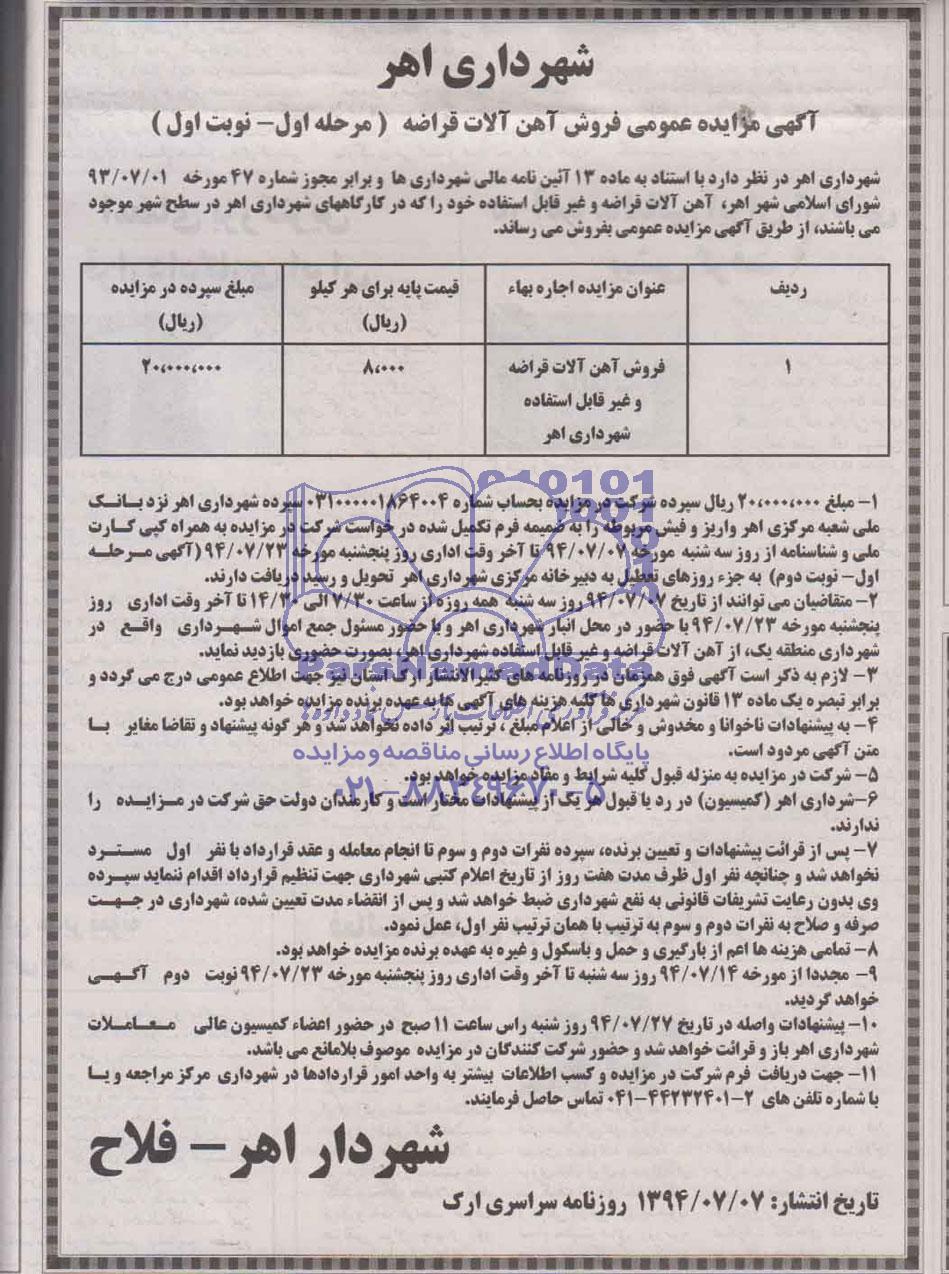 شهرداری اهر
آگهی مزایده عمومی فروش آهن آلات قراضه ( مرحله اول- نوبت اول )
شهرداری اهر در نظر دارد با استناد به ماده ۱۳ آئین نامه مالی شهرداری ها و برابر مجوز شماره ۴۷ مورخه ۹۳/۰۷/۰۱
شورای اسلامی شهر اهر، آهن آلات قراضه و غیر قابل استفاده خود را که در کارگاههای شهرداری اهر در سطح شهر موجود
می باشند، از طریق آگهی مزایده عمومی بفروش می رساند.
ردیف عنوان مزایده اجاره بهاء قیمت پایه برای هر کیلو مبلغ سپرده در مزایده
(ریال) (ریال)
۱ فروش آهن آلات قراضه ۸،۰۰۰ ۲۰،۰۰۰،۰۰۰
و غیر قابل استفاده
شهرداری اهر
۱- مبلغ ۲۰،۰۰۰،۰۰۰ ریال سپرده شرکت در مزایده بحساب شماره ۰۳۱۰۰۰۰۰۱۸۶۴۰۰۴ سپرده شهرداری اهر نزد بانک
ملی شعبه مرکزی اهر واریز و فیش مربوطه را به ضمیمه فرم تکمیل شده در خواست شرکت در مزایده به همراه کپی کارت
ملی و شناسنامه از روز سه شنبه مورخه ۹۴/۰۷/۰۷ تا آخر وقت اداری روز پنجشنبه مورخه ۹۴/۰۷/۲۳ (آگهی مرحله
اول- نوبت دوم) به جزء روزهای تعطیل به دبیرخانه مرکزی شهرداری اهر تحویل و رسید دریافت دارند.
۲- متقاضیان می توانند از تاریخ ۹۴/۰۷/۰۷ روز سه شنبه همه روزه از ساعت ۷/۳۰ الی ۱۴/۳۰ تا آخر وقت اداری روز
پنجشنبه مورخه ۹۴/۰۷/۲۳ با حضور در محل انبار شهرداری اهر و با حضور مسئول جمع اموال شهرداری واقع در
شهرداری منطقه یک، از آهن آلات قراضه و غیر قابل استفاده شهرداری اهر، بصورت حضوری بازدید نماید.
ParsNamadData
۳- لازم به ذکر است آگهی فوق همزمان در روزنامه های کثیرالانتشار ارک استان نیز جهت اطلاع عمومی درج می گردد و
برابر تبصره یک ماده ۱۳ قانون شهرداری ها کلیه هزینه های آگهی ها به عهده برنده مزایده خواهد بود.
۴- به پیشنهادات ناخوانا و مخدوش و خالی از اعلام مبلغ ، ترتیب اثر داده نخواهد شد و هر گونه پیشنهاد و تقاضا مغایر با
متن آگهی مردود است.
پایگاه اطلاع رسانی مناقصه و مزایده
۵- شرکت در مزایده به منزله قبول کلیه شرایط و مفاد مزایده خواهد بود.
۰۲۱-۸۸۳۴۹۶۷۰-۵
۶-شرداری اهر (کمیسیون) در رد یا قبول هر یک از پیشنهادات مختار است و کارمندان دولت حق شرکت در مزایده را
ندارند.
۷- پس از قرائت پیشنهادات و تعیین برنده، سپرده نفرات دوم و سوم تا انجام معامله و عقد قرارداد با نفر اول مسترد
نخواهد شد و چنانچه نفر اول ظرف مدت هفت روز از تاریخ اعلام کتبی شهرداری جهت تنظیم قرارداد اقدام ننماید سپرده
وی بدون رعایت تشریفات قانونی به نفع شهرداری ضبط خواهد شد و پس از انقضاء مدت تعیین شده، شهرداری در جهت
صرفه و صلاح به نفرات دوم و سوم به ترتیب با همان ترتیب نفر اول، عمل نمود.
۸- تمامی هزینه ها اعم از بارگیری و حمل و باسکول و غیره به عهده برنده مزایده خواهد بود.
۹- مجددا از مورخه ۹۴/۰۷/۱۴ روز سه شنبه تا آخر وقت اداری روز پنجشنبه مورخه ۹۴/۰۷/۲۳ نوبت دوم آگهی
خواهد گردید.
۱۰- پیشنهادات واصله در تاریخ ۹۴/۰۷/۲۷ روز شنبه راس ساعت ۱۱ صبح در حضور اعضاء کمیسیون عالی معاملات
شهرداری اهر باز و قرائت خواهد شد و حضور شرکت کنندگان در مزایده موصوف بلامانع می باشد.
۱۱- جهت دریافت فرم شرکت در مزایده و کسب اطلاعات بیشتر به واحد امور قراردادها در شهرداری مرکز مراجعه و یا
با شماره تلفن های ۲-۰۴۱-۴۴۲۳۲۴۰۱ تماس حاصل فرمایند.
شهردار اهر – فلاح
تاریخ انتشار: ۱۳۹۴/۰۷/۰۷ روزنامه سراسری ارک